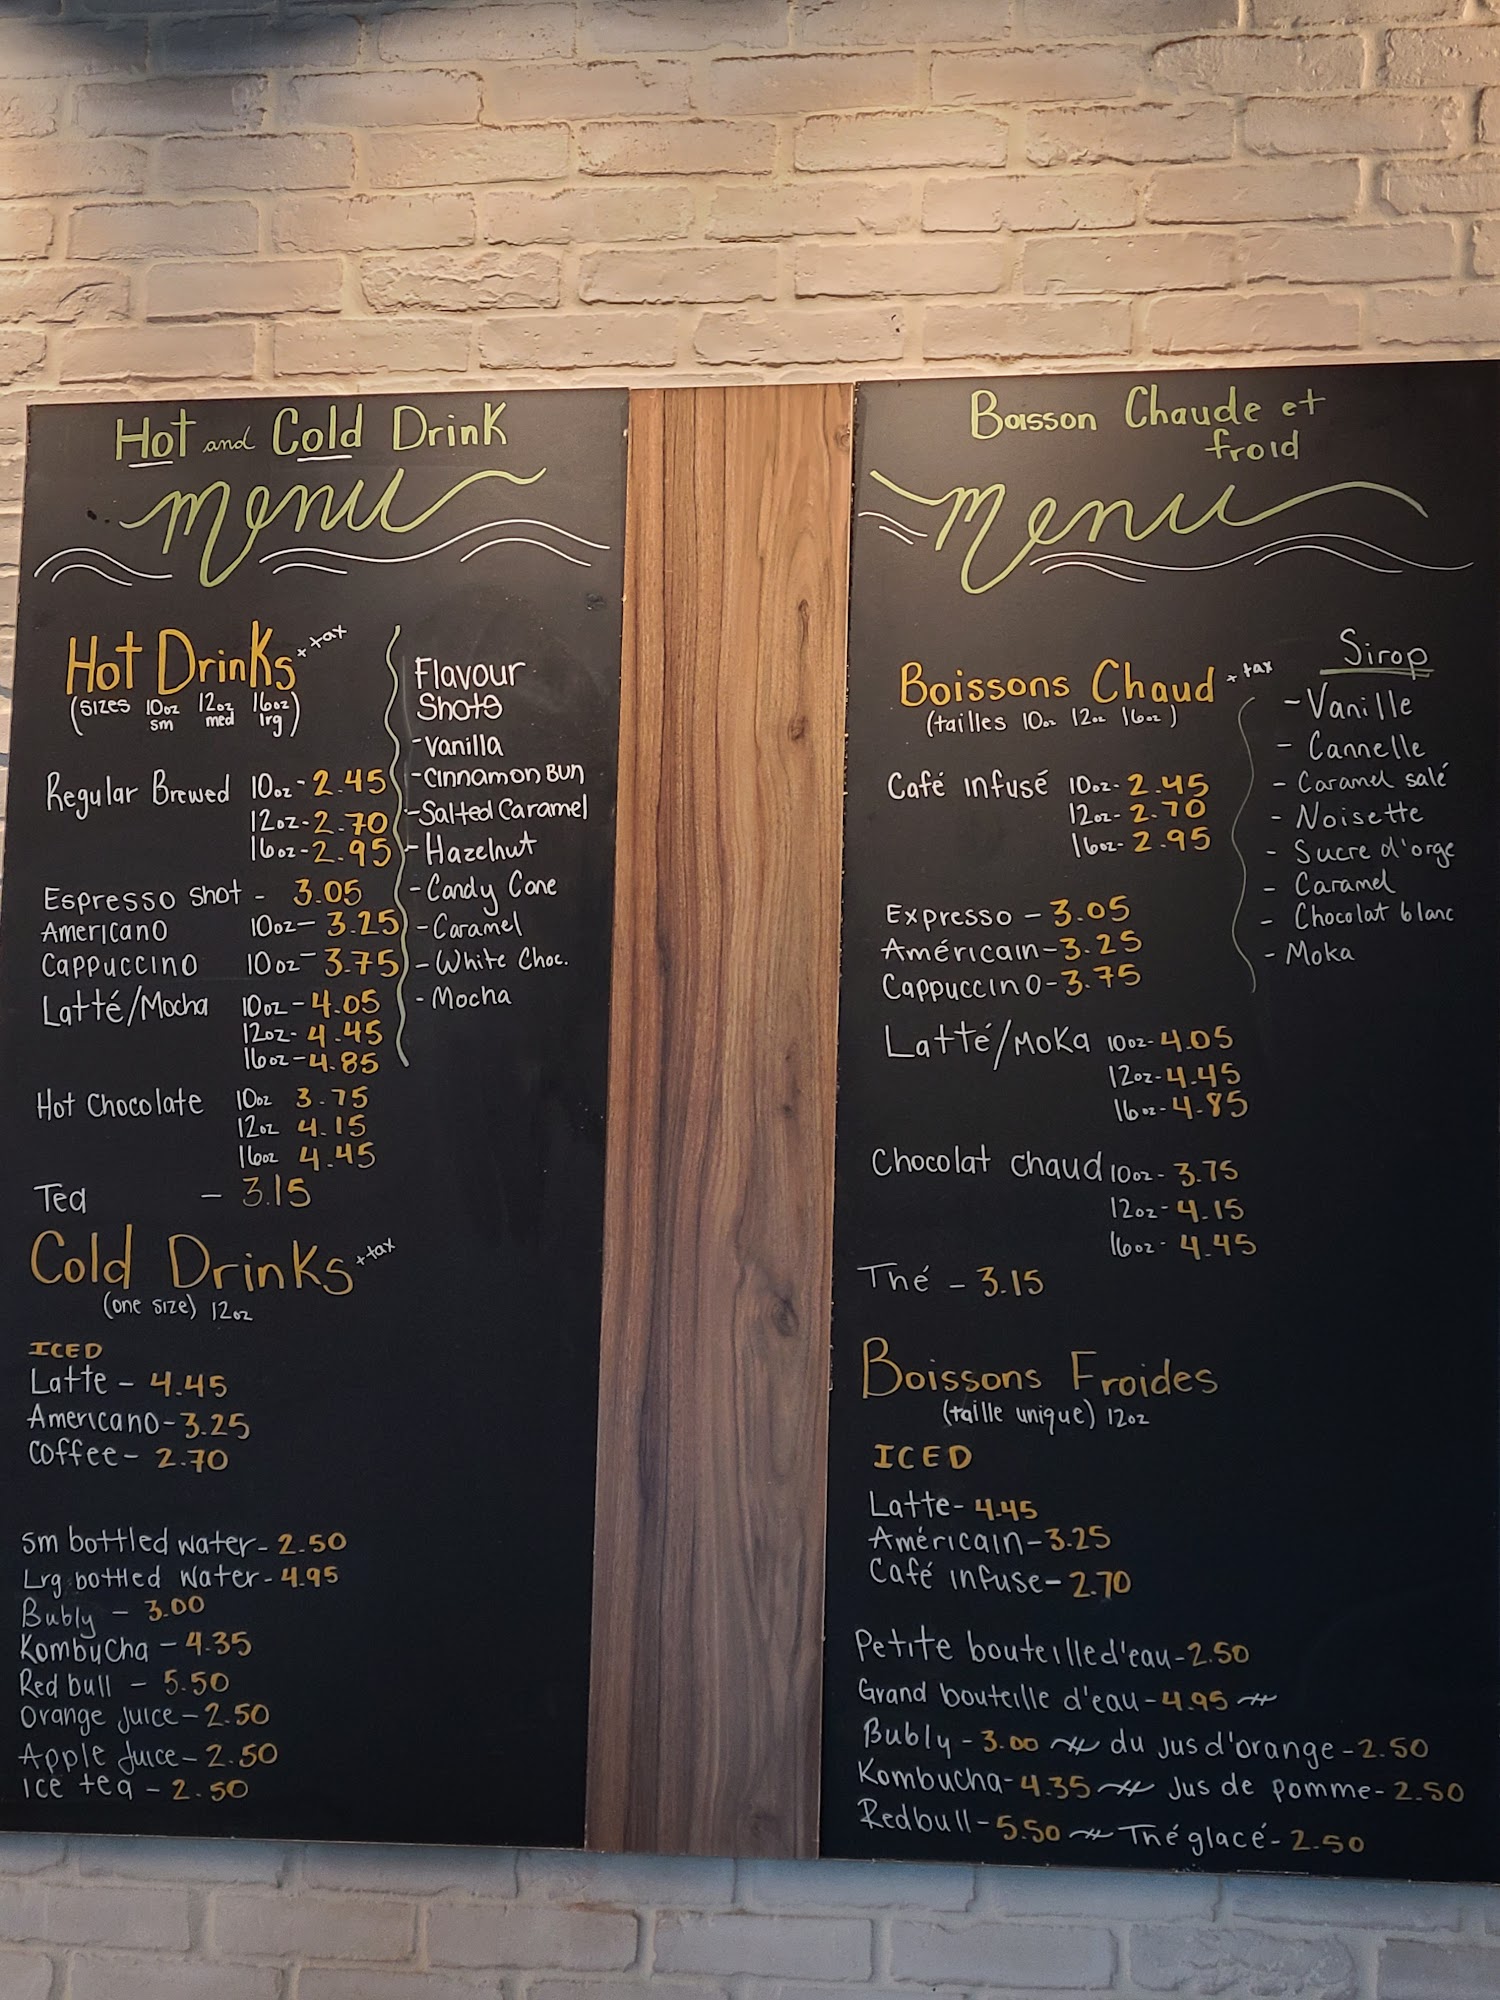 Hot and Cold Drink
Menu
Hot Drinks + tax
(sizes 10oz 12oz 16oz)
sm med lrg
Regular Brewed 10oz - 2.45
12oz - 2.70
16oz - 2.95
Espresso shot - 3.05
Americano 10oz - 3.25
Cappuccino 10oz - 3.75
Latté/Mocha 10oz - 4.05
12oz - 4.45
16oz - 4.85
Hot Chocolate 10oz 3.75
12oz 4.15
16oz 4.45
Tea - 3.15
Flavour
Shots
- Vanilla
- Cinnamon Bun
- Salted Caramel
- Hazelnut
- Candy Cane
- Caramel
- White Choc.
- Mocha
Cold Drinks + tax
(one size) 12oz
ICED
Latte - 4.45
Americano - 3.25
Coffee - 2.70
Sm bottled water - 2.50
Lrg bottled water - 4.95
Bubly - 3.00
Kombucha - 4.35
Red bull - 5.50
Orange Juice - 2.50
Apple Juice - 2.50
Ice tea - 2.50
Boisson Chaude et
froid
Menu
Boissons Chaud + tax
(tailles 10oz 12oz 16oz)
Café infusé 10oz - 2.45
12oz - 2.70
16oz - 2.95
Expresso - 3.05
Américain - 3.25
Cappuccino - 3.75
Latté/Moka 10oz - 4.05
12oz - 4.45
16oz - 4.85
Chocolat chaud 10oz - 3.75
12oz - 4.15
16oz - 4.45
Thé - 3.15
Sirop
- Vanille
- Cannelle
- Caramel salé
- Noisette
- Sucre d'orge
- Caramel
- Chocolat blanc
- Moka
Boissons Froides
(taille unique) 12oz
ICED
Latte - 4.45
Américain - 3.25
Café infuse - 2.70
Petite bouteille d'eau - 2.50
Grand bouteille d'eau - 4.95
Bubly - 3.00 du jus d'orange - 2.50
Kombucha - 4.35 Jus de pomme - 2.50
Redbull - 5.50 Thé glacé - 2.50